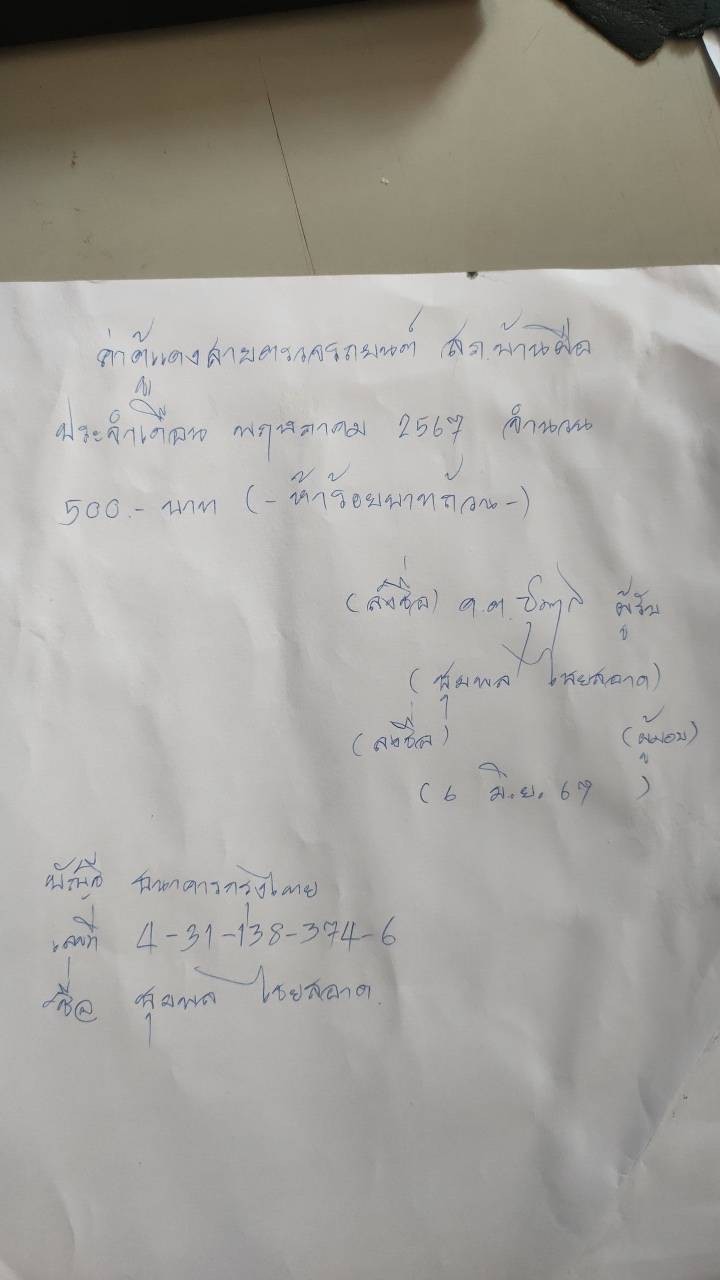 ค่าตู้แดงสายตรวจรถยนต์ สภ.บ้านผือ
ประจำเดือน พฤษภาคม 2567 จำนวน
500.- บาท (-ห้าร้อยบาทถ้วน-)
(ลงชื่อ) ด.ต. ผู้รับ
(ชุมพล ไชยสอาด)
(ลงชื่อ) (ผู้มอบ)
(6 มิ.ย. 67 )
บัญชี ธนาคารกรุงไทย
เลขที่ 4-31-138-374-6
ชื่อ ชุมพล ไชยสอาด.